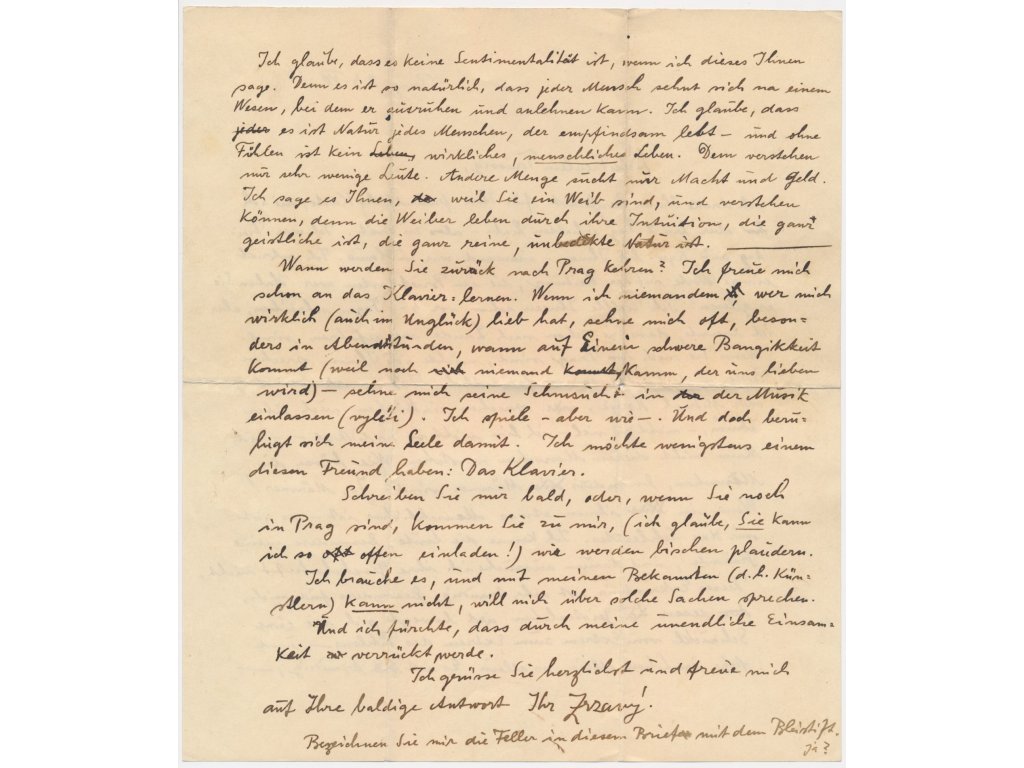 Ich glaube, dass es keine Sentimentalität ist, wenn ich dieses Ihnen
sage. Denn es ist so natürlich, dass jeder Mensch sehnt sich na einem
Wesen, bei dem er ausruhen und anlehnen kann. Ich glaube, dass
jeder es ist Natur jedes Menschen, der empfindsam lebt – und ohne
Fühlen ist kein Leben, wirkliches, menschliches Leben. Dem verstehen
nur sehr wenige Leute. Andere Menge sucht nur Macht und Geld.
Ich sage es Ihnen, weil Sie ein Weib sind, und verstehen
können, denn die Weiber leben durch ihre Intuition, die ganz
geistliche ist, die ganz reine, unbedekte Natur ist.
Wann werden Sie zurück nach Prag kehren? Ich freue mich
schon an das Klavier=lernen. Wenn ich niemandem, wer mich
wirklich (auch im Unglück) lieb hat, sehne mich oft, beson=
ders in Abendstunden, wann auf Einem schwere Bangikkeit
kommt (weil noch niemand kommt, kamm, der uns lieben
wird) – sehne mich seine Sehnsucht in der Musik
einlassen (vyléti). Ich spiele – aber wie –. Und doch beru=
higt sich meine Seele damit. Ich möchte wenigstens einem
diesen Freund haben: Das Klavier.
Schreiben Sie mir bald, oder, wenn Sie noch
in Prag sind, kommen Sie zu mir, (ich glaube, Sie kann
ich so offen einladen!) wir werden bischen plaudern.
Ich brauche es, und mit meinen Bekannten (d. h. Kün=
stlern) kann nicht, will nich über solche Sachen sprechen.
Und ich fürchte, dass durch meine unendliche Einsam=
keit verrückt werde.
Ich grüsse Sie herzlichst und freue mich
auf Ihre baldige Antwort Ihr Zrzavý!
Bezeichnen Sie mir die Feller in diesem Briefe mit dem Bleistift.
ja?